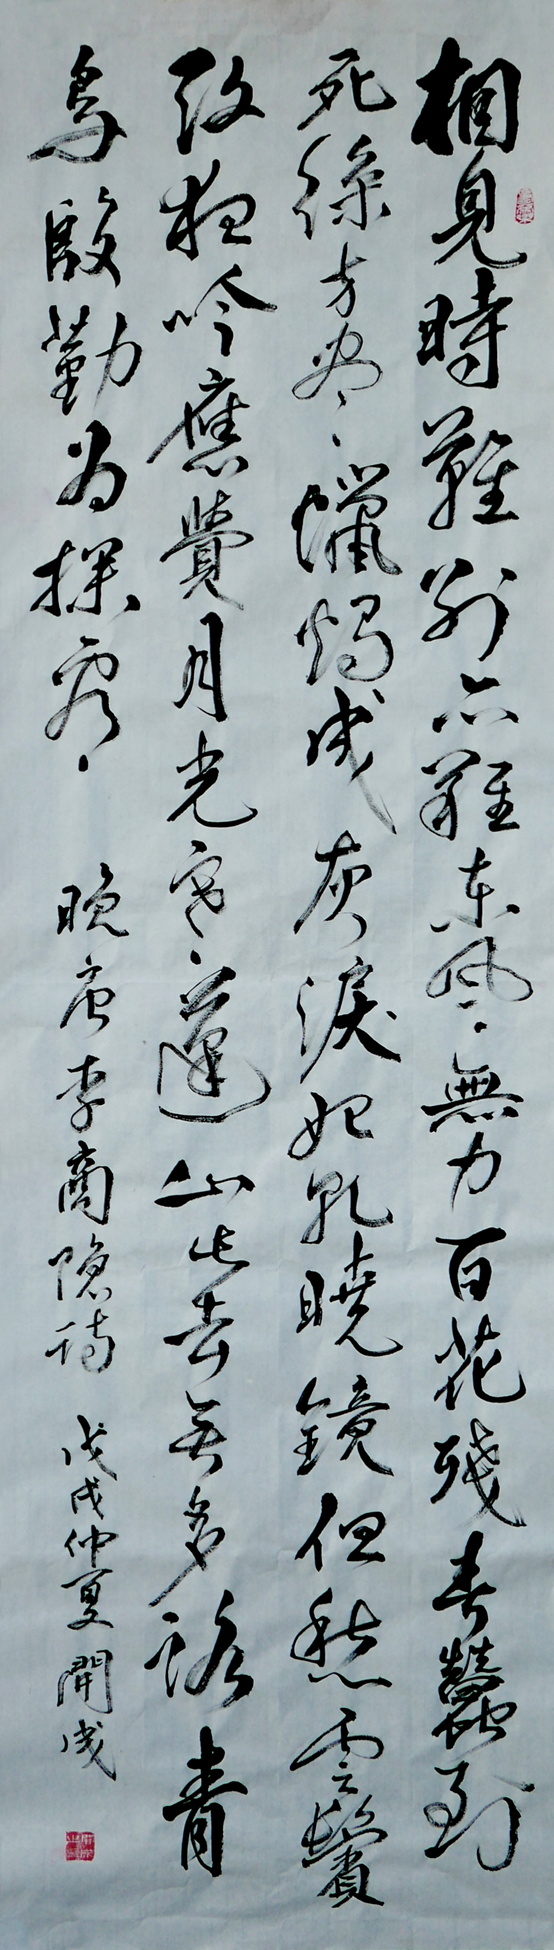 相見時難別亦難東風無力百花殘春蠶到
死絲方盡蠟燭成灰淚始乾曉鏡但愁雲鬢
改夜吟應覺月光寒蓬山此去无多路青
鳥殷勤为探看 晚唐李商隱詩 戊戌仲夏 開成